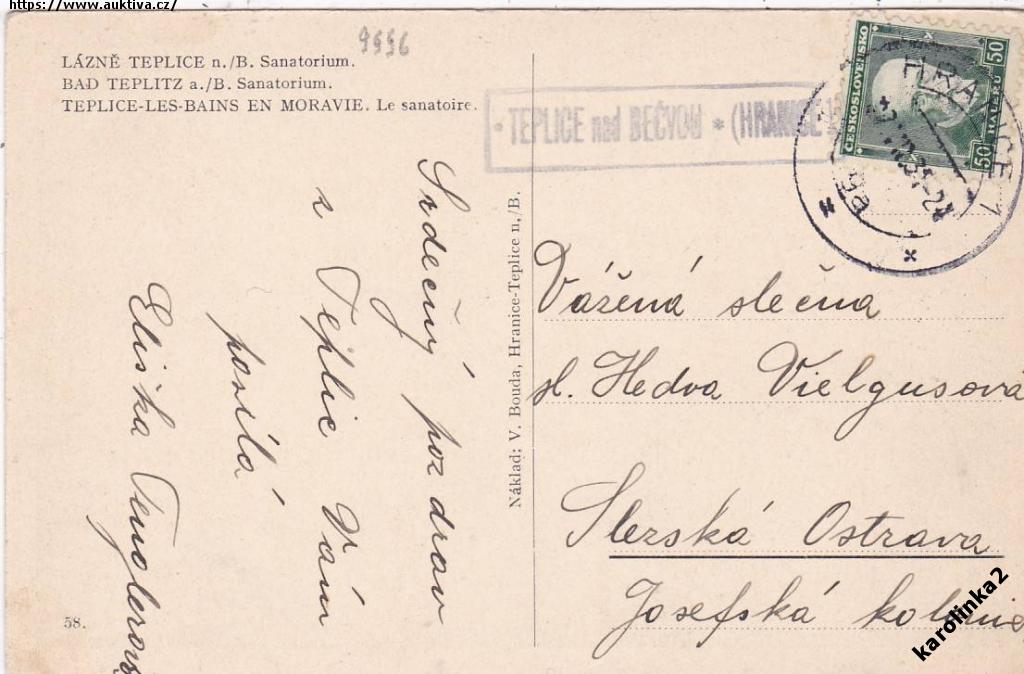 https://www.auktiva.cz/
9996
LÁZNĚ TEPLICE n./B. Sanatorium.
BAD TEPLITZ a./B. Sanatorium.
TEPLICE-LES-BAINS EN MORAVIE. Le sanatoire.
TEPLICE nad BEČVOU * (HRANICE 1)
ČESKOSLOVENSKO
50 HALÉŘŮ 50
HRANICE 1
Srdečný pozdrav
z Teplic Vám
posílá
Eliška
Náklad: V. Bouda, Hranice-Teplice n./B.
Vážená slečna
sl. Hedva Vielgusová
Slezská Ostrava
Josefská kolonie
58.
karolinka2